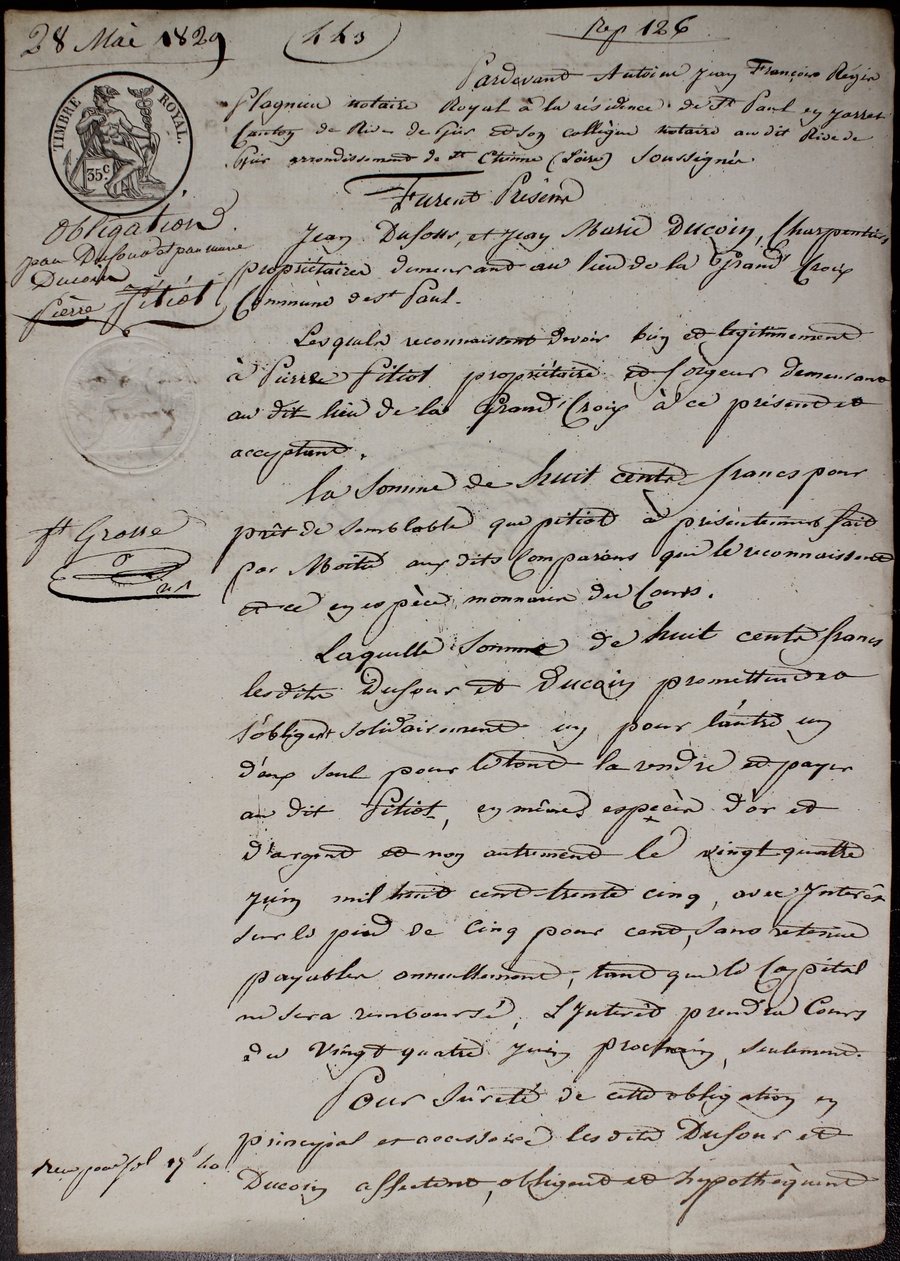 28 Mai 1829
443
Rep 126
Pardevant Antoine Jean François Régis
Flagnieu notaire Royal à la résidence de St Paul en jarret
Canton de Rive de Gier et son collègue notaire au dit Rive de
Gier arrondissement de St Etienne (Loire) Soussignés
TIMBRE ROYAL
35c
Furent Présens
Obligation
par Dufour et jean marie
Ducoin
Pierre Pitiot
Jean Dufour, et Jean Marie Ducoin, Charpentiers
propriétaires demeurant au lieu de la Grand Croix
Commune de St Paul.
Lesquels reconnaissent devoir bien et légitimement
à Pierre Pitiot propriétaire et forgeur demeurant
au dit lieu de la Grand Croix à ce présent et
acceptant.
la somme de huit cents francs pour
prêt de semblable que pitiot à présentement fait
par Moitié aux dits Comparans qui le reconnaissent
et ce en espèce monnaie du Cours.
ft Grosse
Laquelle somme de huit cents francs
lesdits Dufour et Ducoin promettent et
s'obligent solidairement un pour l'autre un
d'eux seul pour le tout la rendre et payer
au dit Pitiot, en mêmes espèces d'or et
d'argent et non autrement le vingt quatre
juin mil huit cent trente cinq, avec Intérêt
sur le pied de Cinq pour cent, sans retenue
payables annuellement, tant que le Capital
ne sera remboursé, L'Interêt prendra Cours
du Vingt quatre Juin prochain, seulement.
Pour sûreté de cette obligation en
principal et accessoires lesdits Dufour et
Ducoin affectent, obligent et hypothèquent